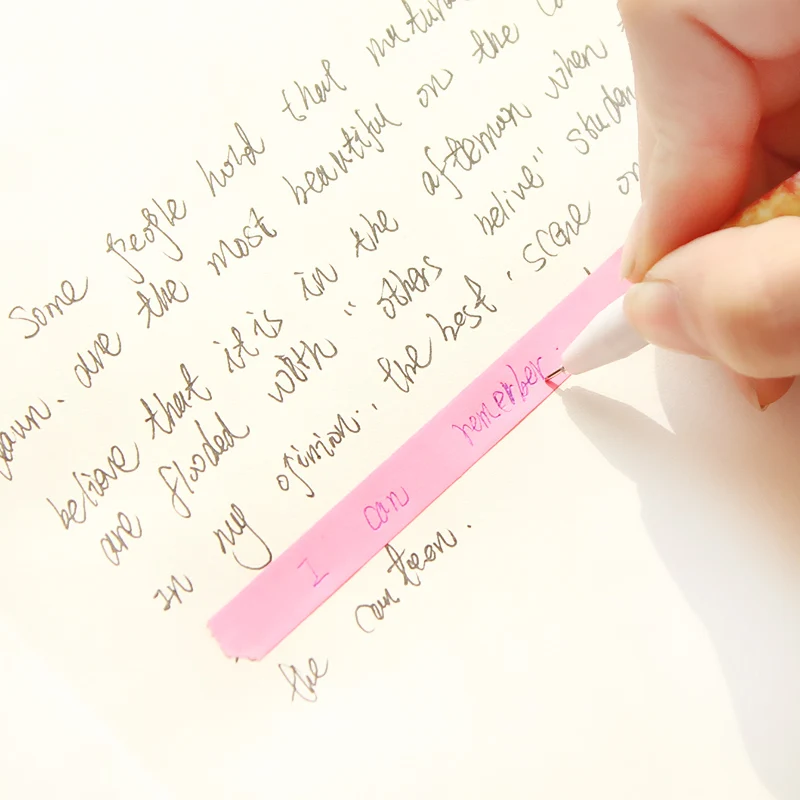 Some people hold that
are the most beautiful on the
believe that it is in the afternoon when
are flooded with " others belive" studen
in my opinion., the best . scene on
I can remember.
the canteen.